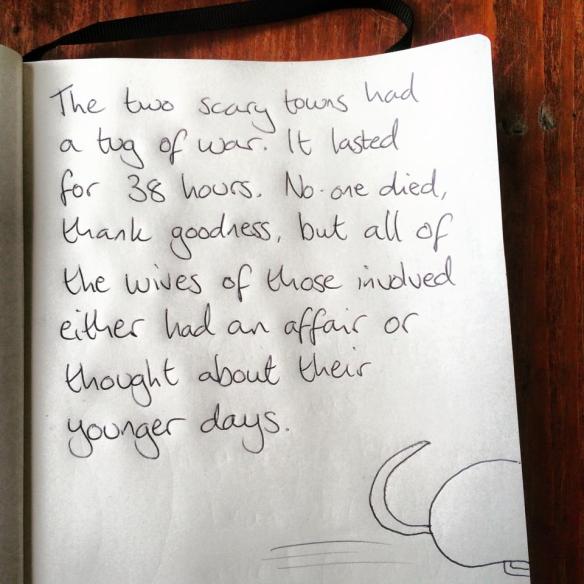 The two scary towns had
a tug of war. It lasted
for 38 hours. No-one died,
thank goodness, but all of
the wives of those involved
either had an affair or
thought about their
younger days.